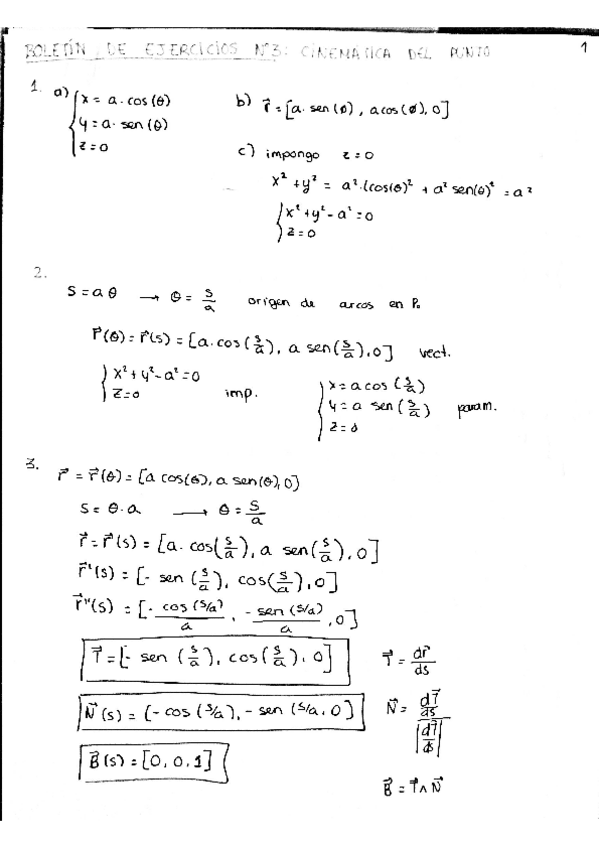 BOLETÍN DE EJERCICIOS Nº3: CINEMÁTICA DEL PUNTO 1
1. a) { x = a · cos(θ)
y = a · sen(θ)
z = 0
b) r⃗ = [a · sen(ø), a cos(ø), 0]
c) impongo z = 0
x² + y² = a² · (cos(θ)² + a² sen(θ)² = a²
{ x² + y² - a² = 0
z = 0
2.
S = a θ → θ = S/a origen de arcos en P₀
r⃗(θ) = r⃗(s) = [a · cos(s/a), a sen(s/a), 0] vect.
{ x² + y² - a² = 0
z = 0 imp.
{ x = a cos(s/a)
y = a sen(s/a) param.
z = 0
3. r⃗ = r⃗(θ) = [a cos(θ), a sen(θ), 0]
S = θ · a → θ = S/a
r⃗ = r⃗(s) = [a · cos(s/a), a sen(s/a), 0]
r⃗'(s) = [- sen(s/a), cos(s/a), 0]
r⃗''(s) = [- cos(s/a)/a, - sen(s/a)/a, 0]
T⃗ = [- sen(s/a), cos(s/a), 0] T⃗ = dr⃗/ds
N⃗(s) = [- cos(s/a), - sen(s/a, 0] N⃗ = (dT⃗/ds)/|dT⃗/ds|
B⃗(s) = [0, 0, 1]
B⃗ = T⃗ ∧ N⃗